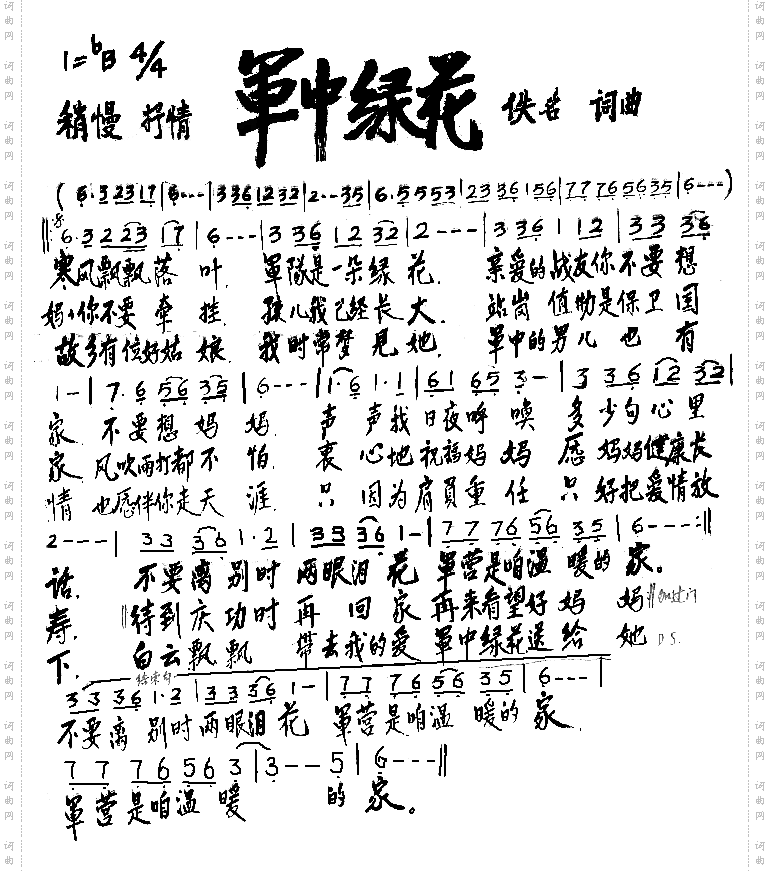 1=♭B 4/4
軍中绿花
稍慢 抒情
佚名 词曲
(6·3 23 17|6---|336 12 32|2--35|6·5 55 53|23 36 1 56|77 76 56 35|6---)
6·3 2 23 17|6---|3 36 12 32|2---|3 36 1 12|33 33 36|
寒风飘飘落叶. 軍隊是一朵绿花. 亲爱的战友你不要想
妈妈你不要牵挂. 孩儿我已经长大. 站岗值勤是保卫国
故乡有位好姑娘. 我时常梦见她. 軍中的男儿也有
1-|7·6 56 35|6---|1·6 1·1|61 65 3-|3 36 12 32|
家. 不要想妈妈. 声声我日夜呼唤 多少句心里
家. 风吹雨打都不怕. 衷心地祝福妈妈 愿妈妈健康长
情 也愿伴你走天涯. 只因为肩負重任 只好把爱情放
2---|33 36 1·2|33 33 36 1-|77 76 56 35|6---:||
话. 不要离别时两眼泪花 軍营是咱温暖的家。
寿. 待到庆功时再回家 再来看望好妈妈
下. 白云飘飘 帶去我的爱 軍中绿花送给她 D.S.
结束句
33 36 1·2|33 33 36 1-|77 76 56 35|6---|
不要离别时两眼泪花 軍营是咱温暖的家.
77 76 56 3|3--5|6---||
軍营是咱温暖 的家。
词曲网